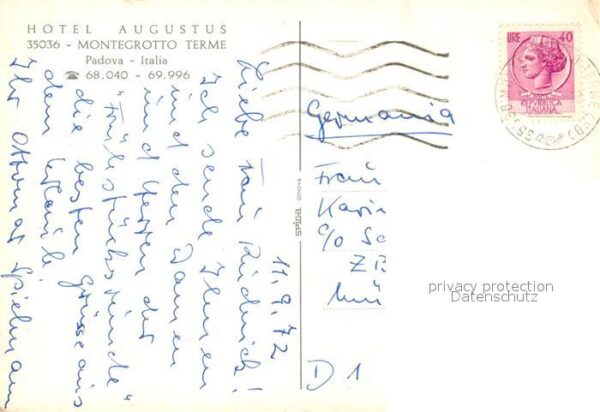 HOTEL AUGUSTUS
35036 - MONTEGROTTO TERME
Padova - Italia
☎ 68.040 - 69.996
11.9.72
Liebe Frau
Ich sende Ihnen
und den Damen
und Herren der
"Frühstücksrunde"
die besten Grüsse aus
dem Urlaub.
Ihr Ottomar Spielmann
SPIGA GENOVA
LIRE 40
REPVBBLICA
ITALIANA
Germania
Frau
Karin
c/o Sc
Mü
D 1
privacy protection
Datenschutz